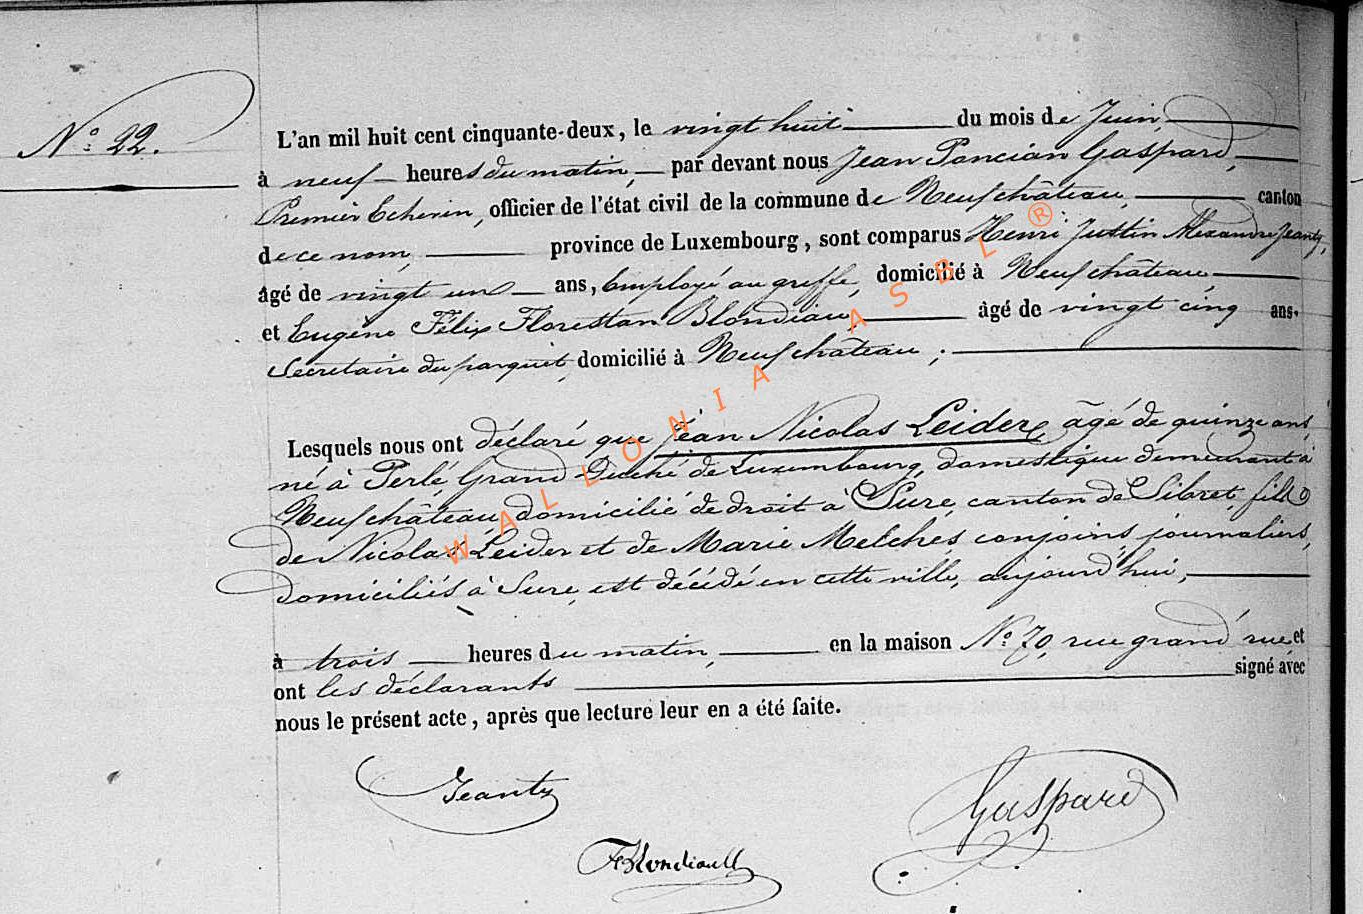 N.º 22.
L'an mil huit cent cinquante-deux, le vingt huit du mois de Juin,
à neuf heures du matin, par devant nous Jean Poncian Gaspard,
Premier Echevin, officier de l'état civil de la commune de Neufchâteau, canton
de ce nom, province de Luxembourg, sont comparus Henri Justin Alexandre Jeanty,
âgé de vingt un ans, Employé au greffe, domicilié à Neufchâteau,
et Eugène Félix Florestan Blondiau, âgé de vingt cinq ans.
Secretaire du parquet, domicilié à Neufchâteau ;
Lesquels nous ont déclaré que Jean Nicolas Leider, âgé de quinze ans,
né à Perlé, Grand-Duché de Luxembourg, domestique demeurant à
Neufchâteau, domicilié de droit à Sure, canton de Sibret, fils
de Nicolas Leider et de Marie Melches, conjoins, journaliers,
domiciliés à Sure, est décédé en cette ville, aujourd'hui,
à trois heures du matin, en la maison N.º 70, rue grand'rue, et
ont les déclarants signé avec
nous le présent acte, après que lecture leur en a été faite.
Jeanty
Gaspard
FBlondiault
WALLONIA ASBL ®